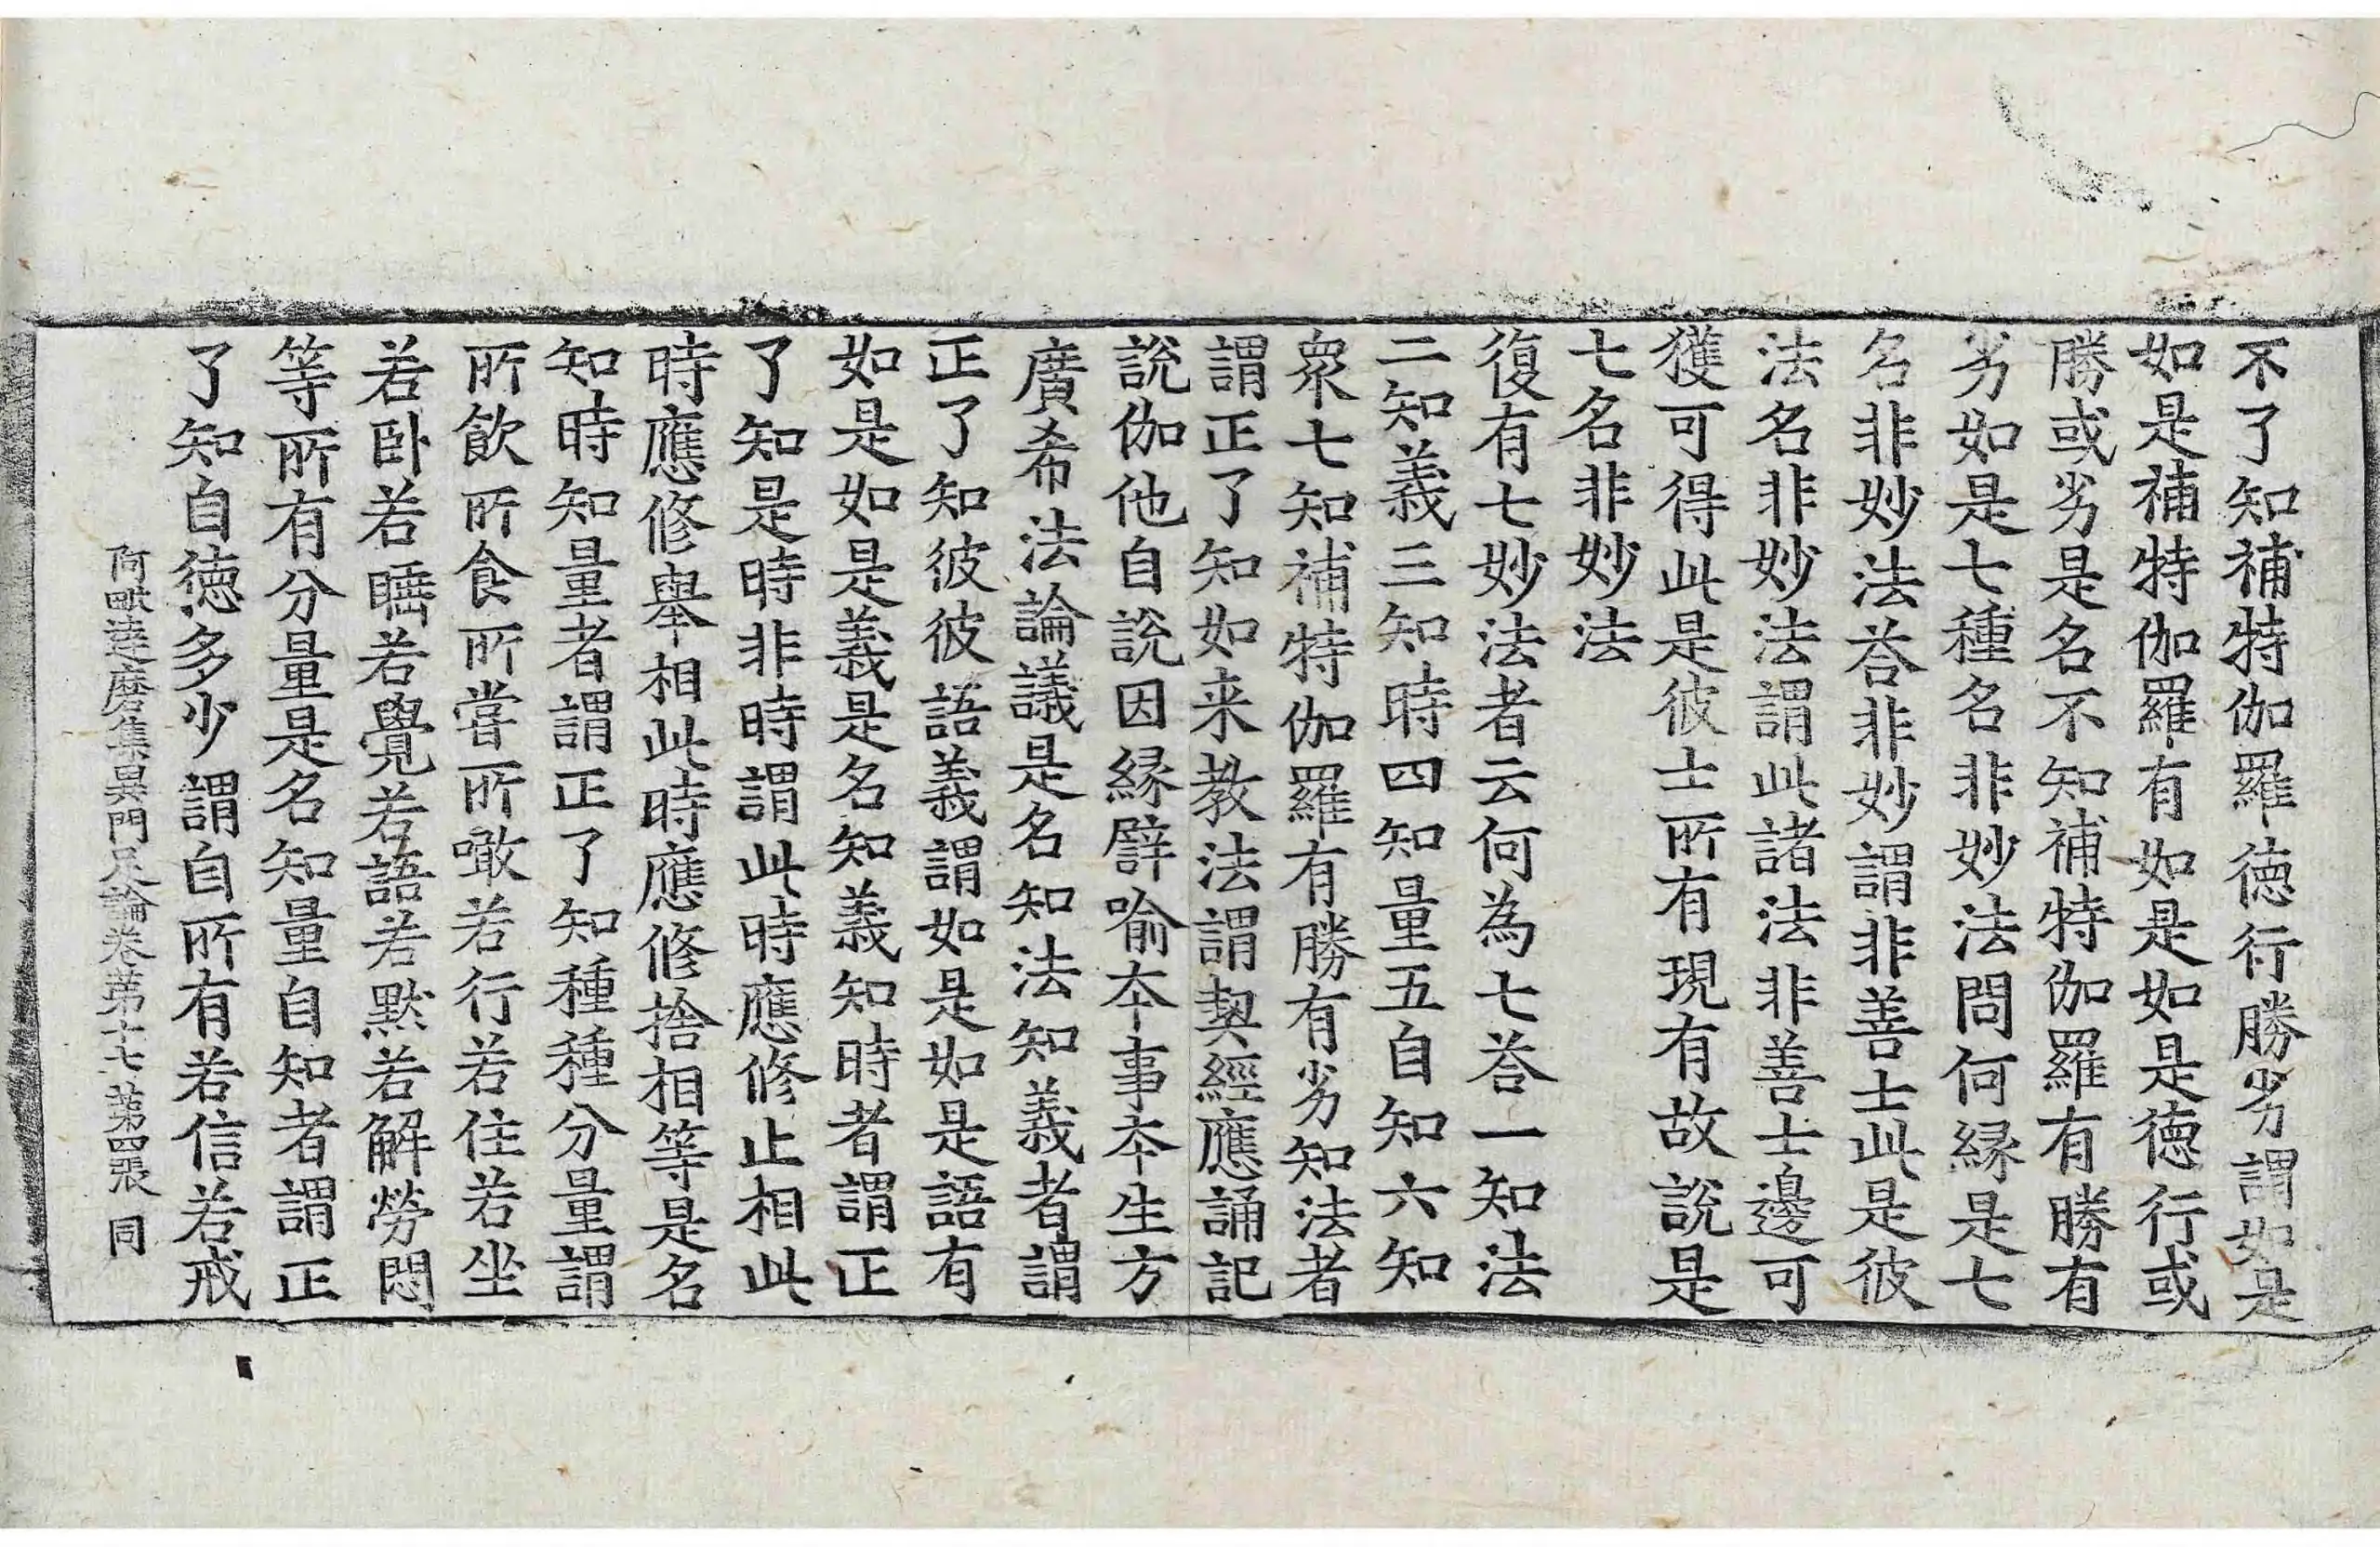 不了知補特伽羅德行勝劣謂如是
如是補特伽羅有如是如是德行或
勝或劣是名不知補特伽羅有勝有
劣如是七種名非妙法問何縁是七
名非妙法荅非妙謂非善士此是彼
法名非妙法謂此諸法非善士邊可
獲可得此是彼士所有現有故說是
七名非妙法
復有七妙法者云何為七荅一知法
二知義三知時四知量五自知六知
衆七知補特伽羅有勝有劣知法者
謂正了知如来教法謂契經應誦記
說伽他自說因縁譬喻夲事夲生方
廣希法論議是名知法知義者謂
正了知彼彼語義謂如是如是語有
如是如是義是名知義知時者謂正
了知是時非時謂此時應修止相此
時應修舉相此時應修捨相等是名
知時知量者謂正了知種種分量謂
所飲所食所甞所噉若行若住若坐
若卧若睡若覺若語若默若解勞悶
等所有分量是名知量自知者謂正
了知自德多少謂自所有若信若戒
阿毗達磨集異門足論卷第十七 第四張 同